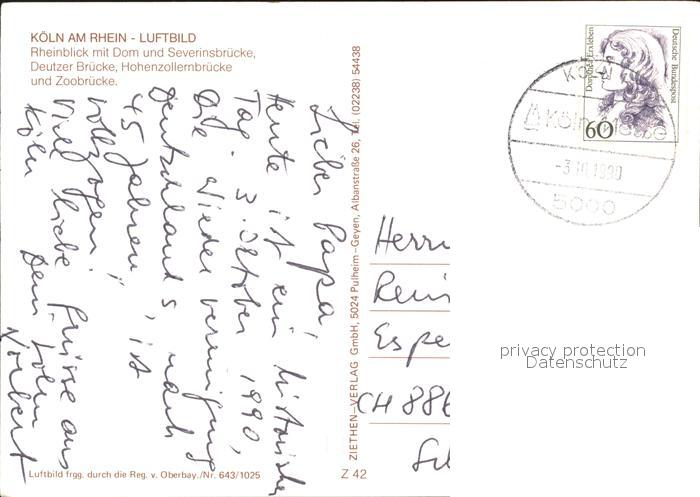 KÖLN AM RHEIN - LUFTBILD
Rheinblick mit Dom und Severinsbrücke,
Deutzer Brücke, Hohenzollernbrücke
und Zoobrücke.
Lieber Papa!
Heute ist ein historischer
Tag. 3. Oktober 1990,
Die Wiedervereinigung
Deutschlands, nach
45 Jahren, ist
vollzogen!
Viele liebe Grüsse aus
Köln Dein Sohn
Norbert
Luftbild frgg. durch die Reg. v. Oberbay./Nr. 643/1025
ZIETHEN-VERLAG GmbH, 5024 Pulheim-Geyen, Albanstraße 26, Tel. (02238) 54438
Z 42
Dorothea Erxleben
Deutsche Bundespost
60
KÖLN
Köln Messe
-3.10.1990
5000
Herrn
Rein
Espe
CH 886
privacy protection
Datenschutz